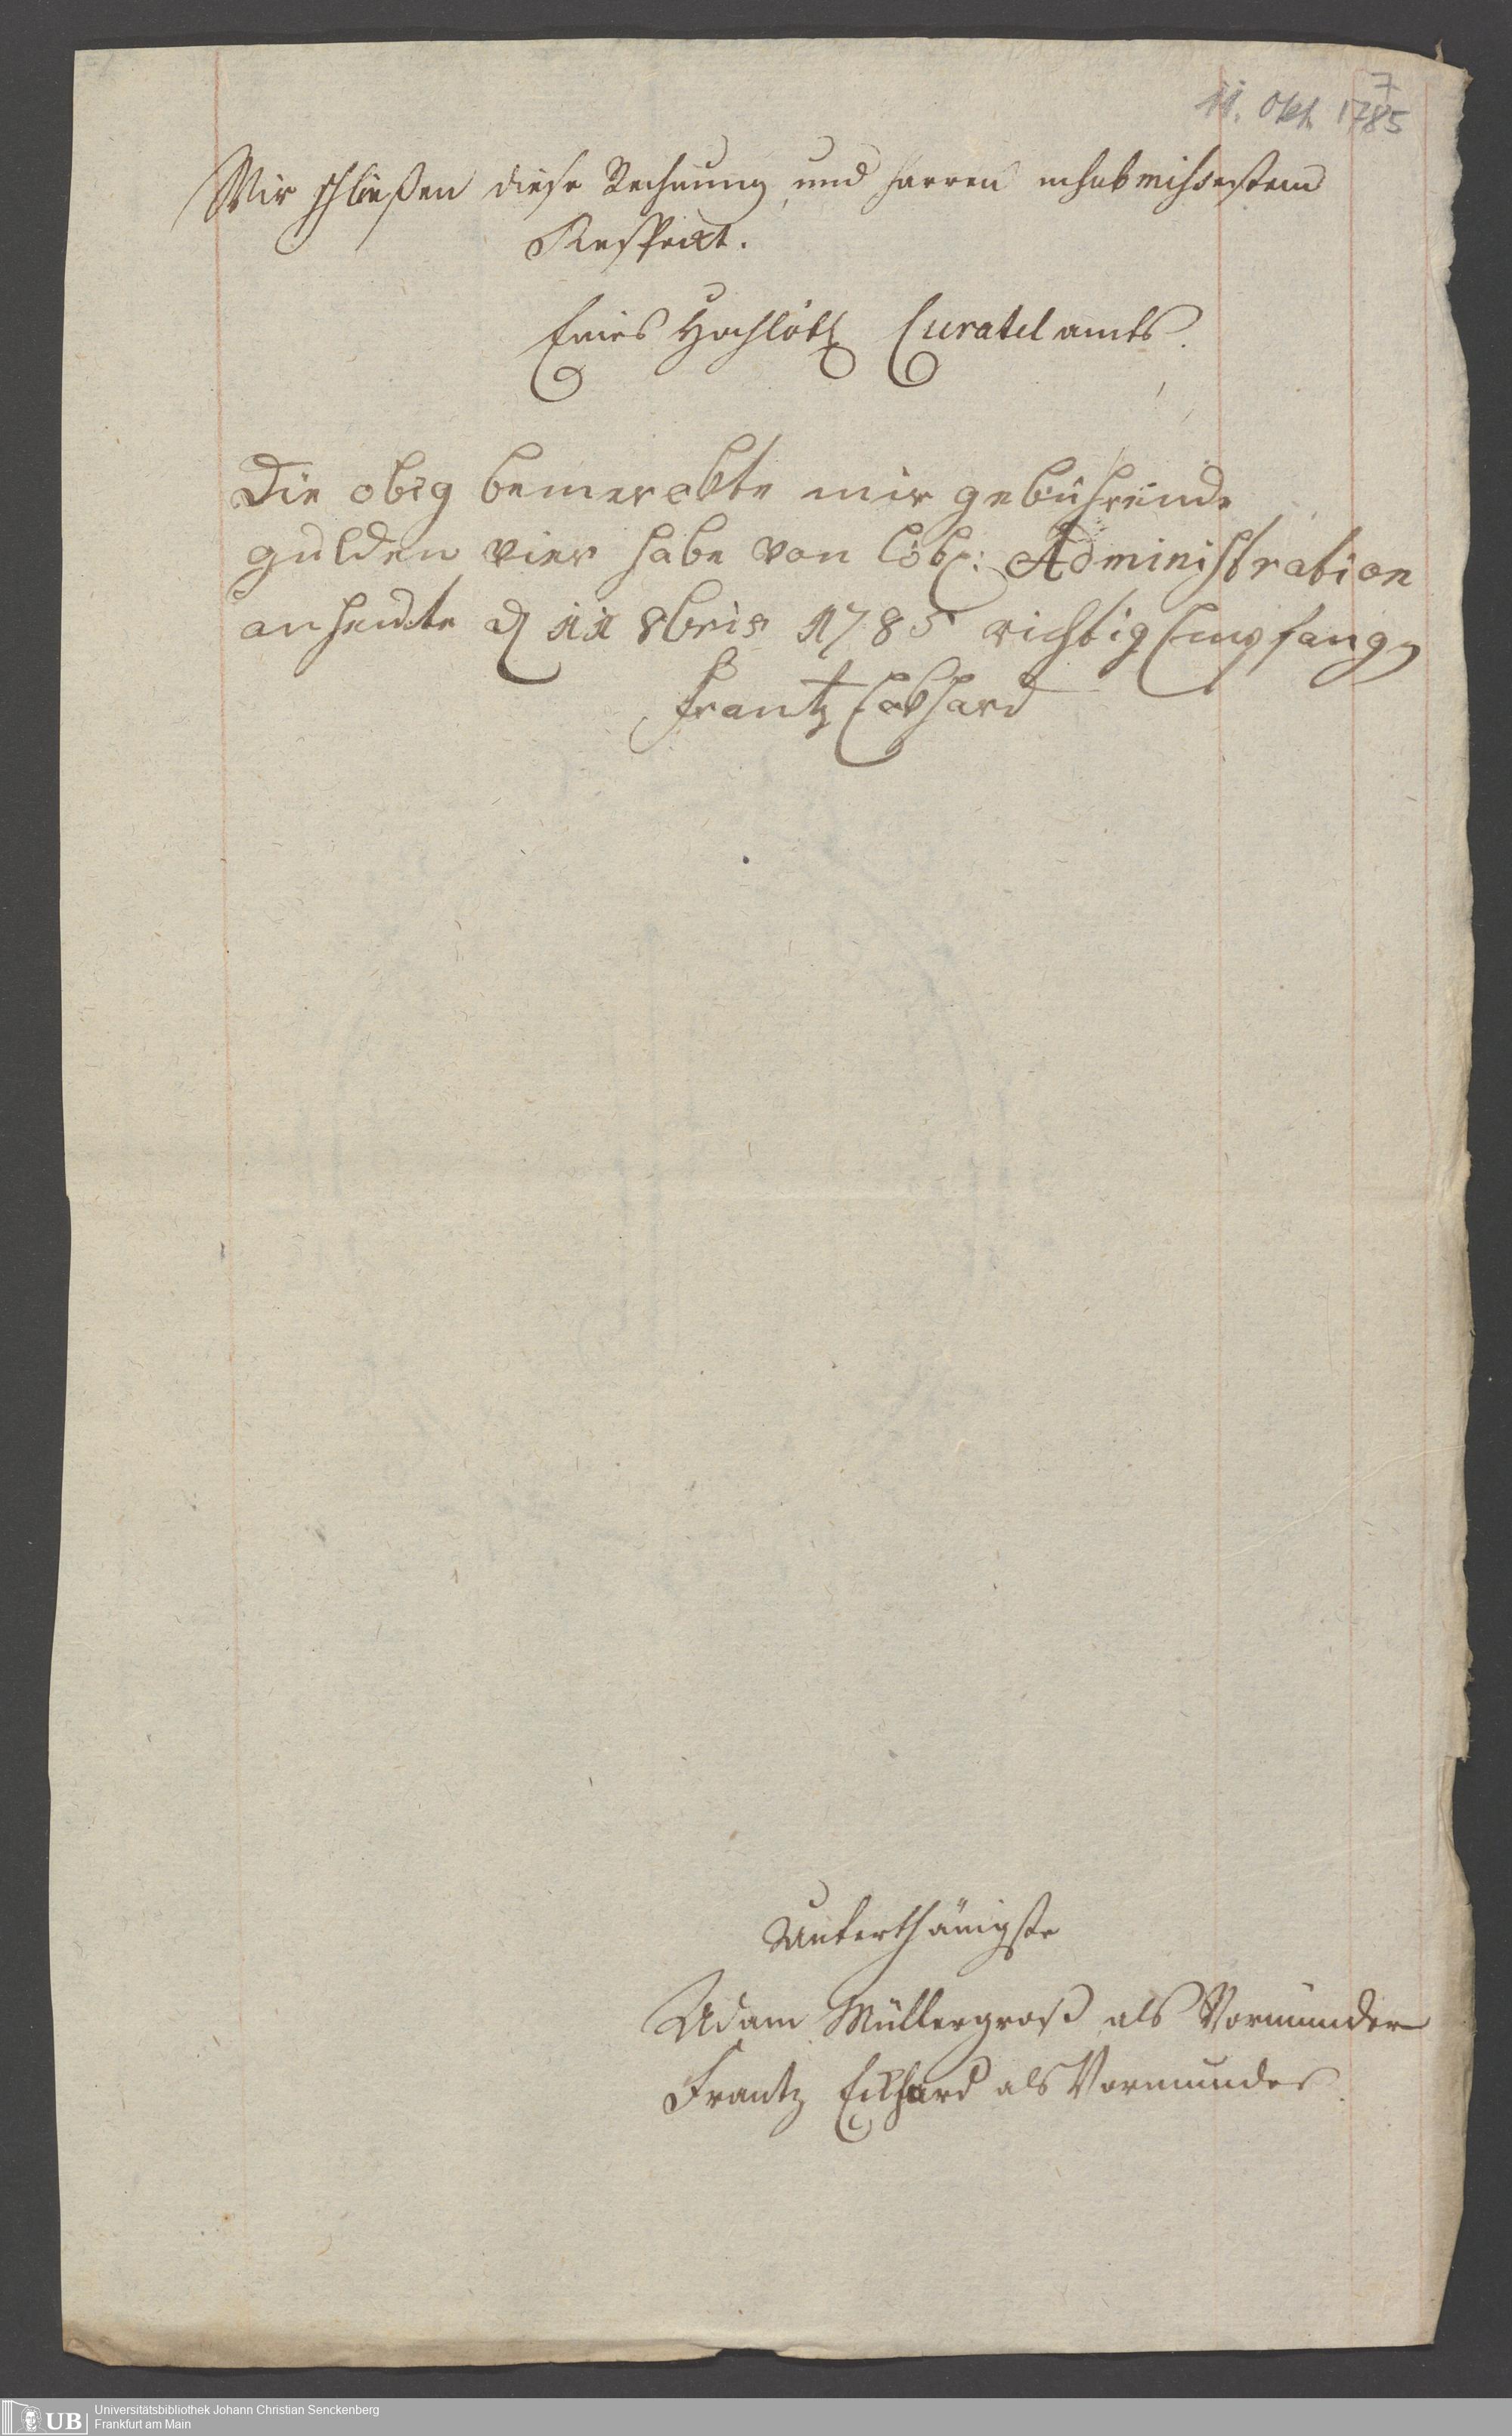 7
11. Okt. 1785
Wir schließen diese Rechnung, und harren in submissestem
Respect.
Eines Hochlöbl. Curatel amts.
Die obig bemerckte mir gebührende
gulden vier habe von Löbl: Administration
anheudte d 11 8bris 1785 richtig Empfang
Frantz Eckhard
Unterthänigste
Adam Müllergroß als Vormünder
Frantz Eckhard als Vormunder
UB
Universitätsbibliothek Johann Christian Senckenberg
Frankfurt am Main